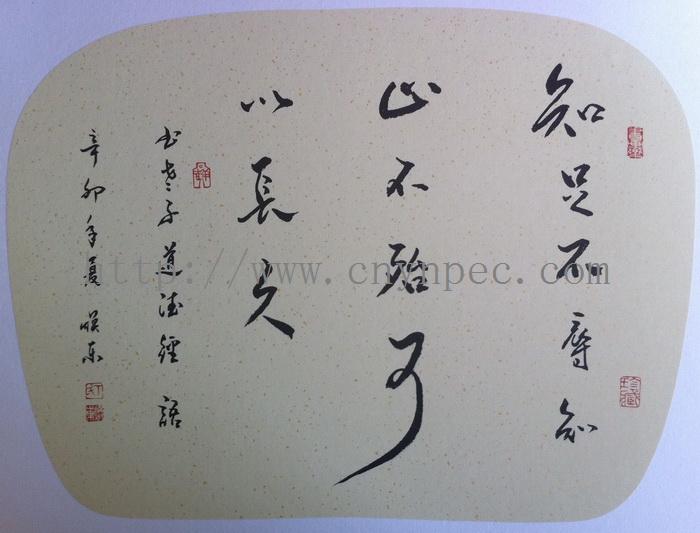 知足不辱知
止不殆可
以長久
书老子道德經語
辛卯年夏 暎東
http://www.cnynpec.com